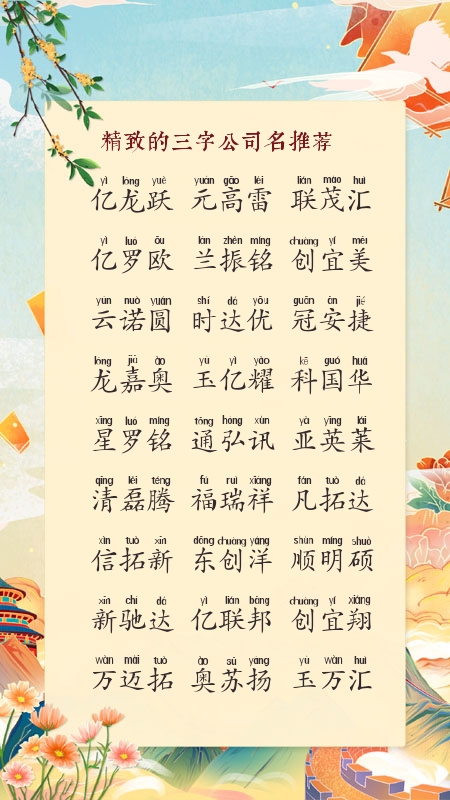 精致的三字公司名推荐
yì lóng yuè yuán gāo léi lián mào huì
亿龙跃 元高雷 联茂汇
yì luó ōu lán zhèn míng chuàng yí měi
亿罗欧 兰振铭 创宜美
yún nuò yuán shí dá yōu guān ān jié
云诺圆 时达优 冠安捷
lóng jiā ào yù yì yào kē guó huá
龙嘉奥 玉亿耀 科国华
xīng luó míng tōng hóng xùn yà yīng lái
星罗铭 通弘讯 亚英莱
qīng lěi téng fú ruì xiáng fán tuò dá
清磊腾 福瑞祥 凡拓达
xìn tuò xīn dōng chuàng yáng shùn míng shuò
信拓新 东创洋 顺明硕
xīn chí dá yì lián bāng chuàng yí xiáng
新驰达 亿联邦 创宜翔
wàn mài tuò ào sū yáng yù wàn huì
万迈拓 奥苏扬 玉万汇